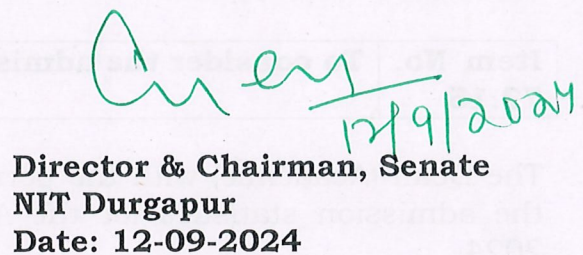 12/9/2024
Director & Chairman, Senate
NIT Durgapur
Date: 12-09-2024